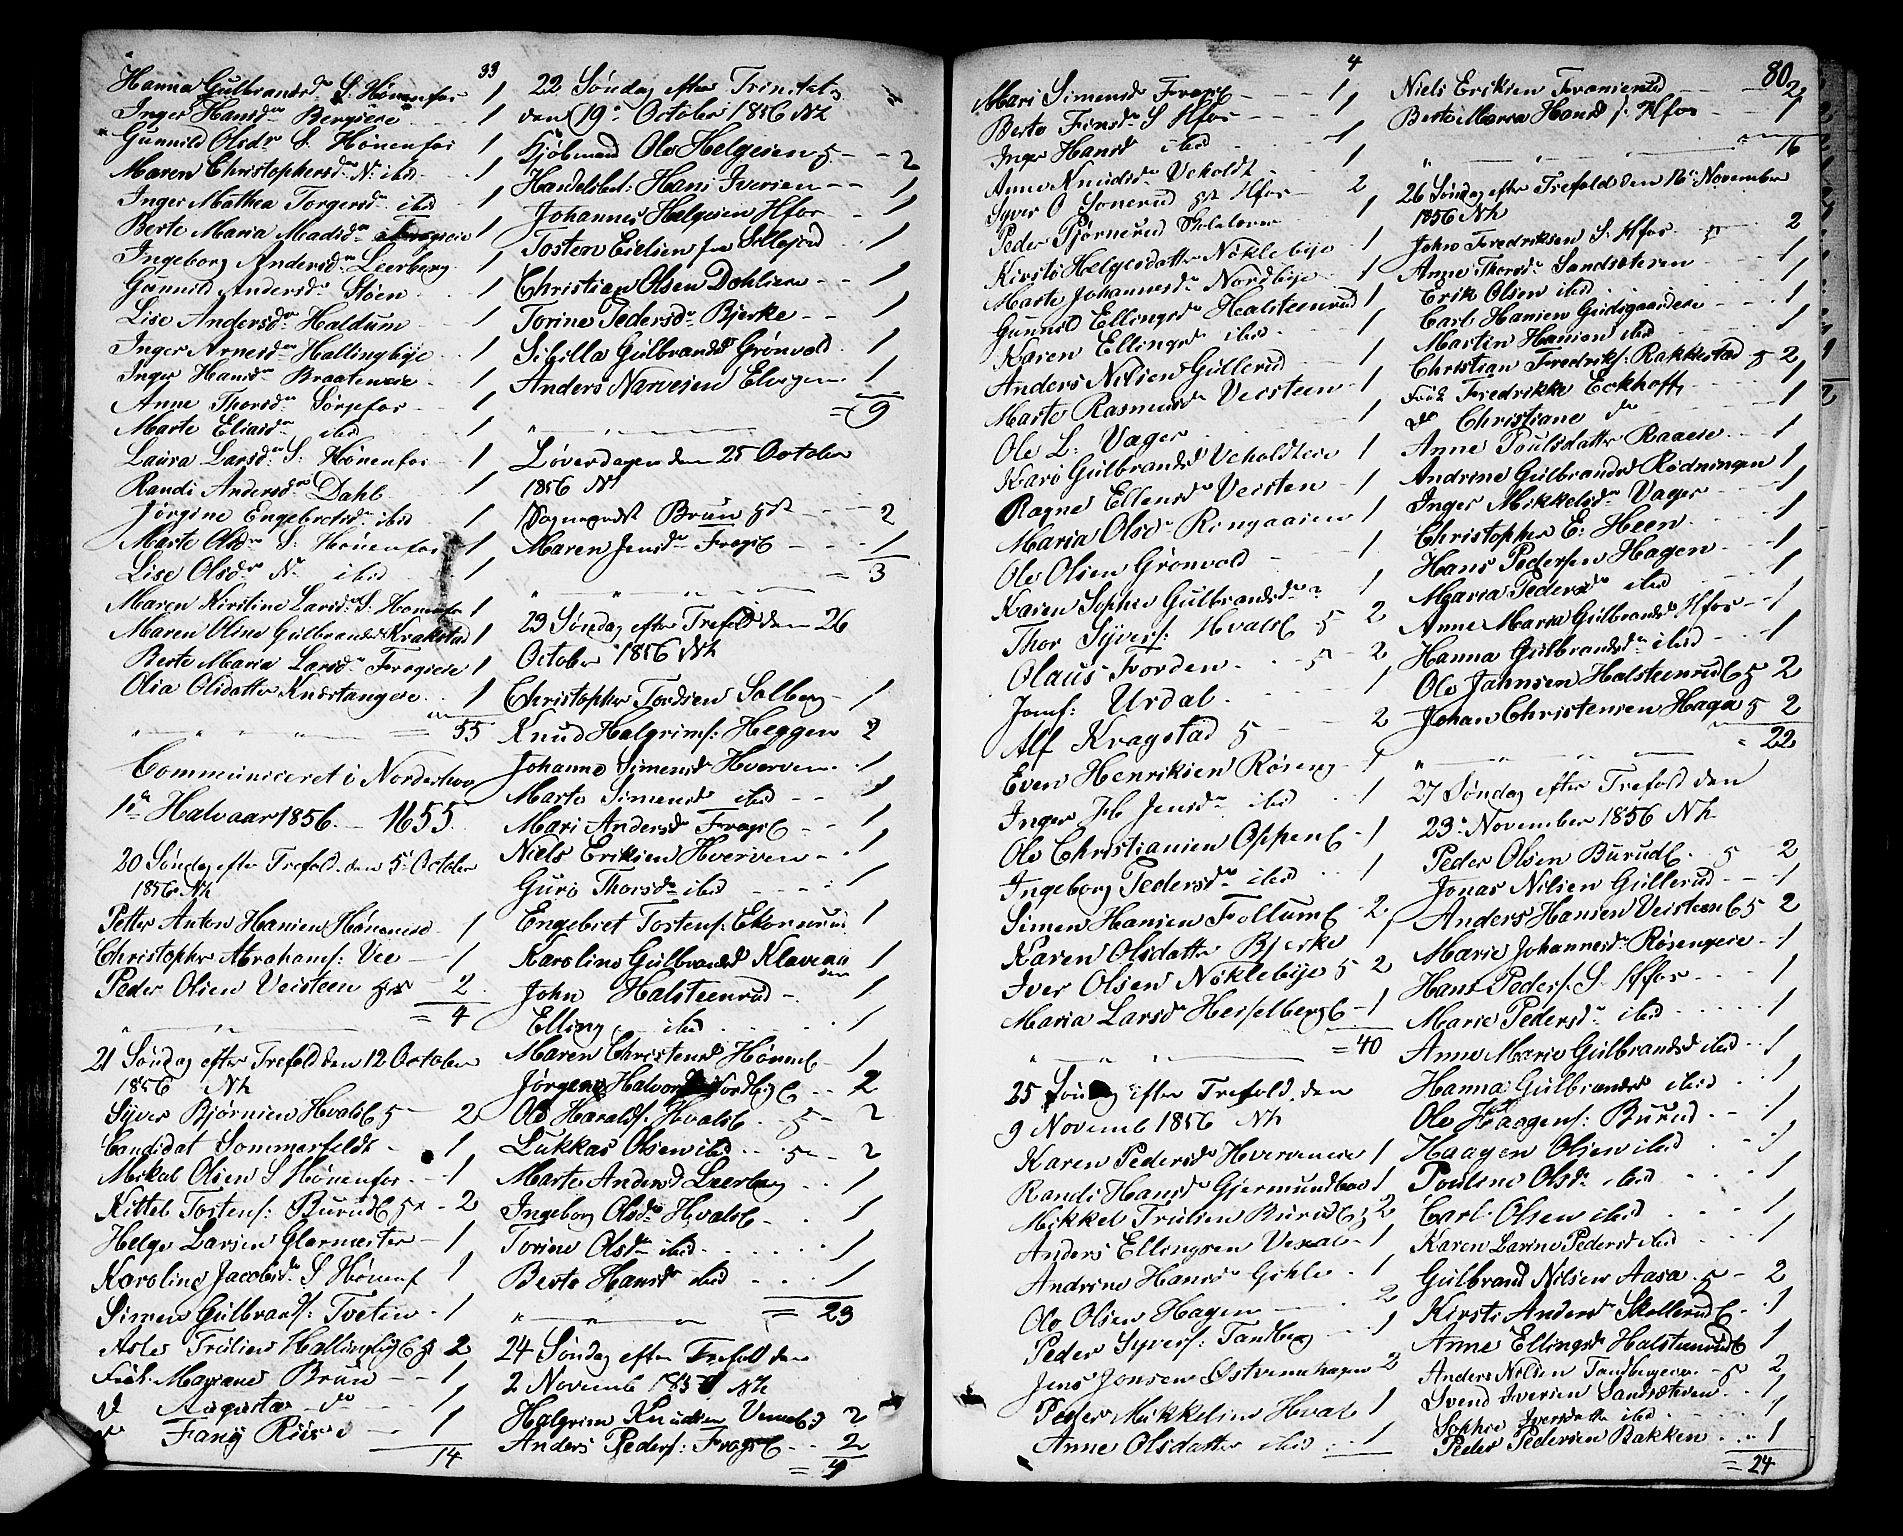 33
Hanna Gulbrandsdr S. Hønenfos 1
Inger Hansdr Bergseie 1
Gunnild Olsdr S. Hønenfos 1
Maren Christophersdr N. ibid 1
Inger Mathea Torgersdr ibid 1
Berte Maria Madsdr Frogseie 1
Ingeborg Andersdr Leerberg 1
Gunnild Andersdr Støen 1
Lise Andersdr Haldum 1
Inger Arnesdr Hallingbye 1
Inger Hansdr Braateneie 1
Anne Thorsdr Sørgefos 1
Marte Eliasdr ibid 1
Laura Larsdr S. Hønenfos 1
Randi Andersdr Dahl 1
Jørgine Engebretsdr ibid 1
Marte Olsdr S. Hønenfos 1
Lise Olsdr N. ibid 1
Maren Kirstine Larsdr S. Hønenfos 1
Maren Oline Gulbrandsdr Krakstad 1
Berte Maria Larsdr Frogseie 1
Olia Olsdatter Knestangeie 1
= 55
Communiceret i Norderhov
1ste Halvaar 1856. — 1655.
20 Søndag efter Trefold. den 5. October
1856 Nh
Petter Anton Hansen Høneneie 1
Christopher Abrahams: Vee 1
Peder Olsen Veisteen 5s 2
= 4
21 Søndag efter Trefold den 12 October
1856 Nh
Syver Bjørnsen Hvals E 5 2
Candidat Sommerfeldt 1
Mikal Olsen S Hønenfos 1
Kittel Tostens: Burud E 5s 2
Helge Larsen Glarmester 1
Karoline Jacobsdr S Hønenf 1
Simen Gulbrands: Tveten 1
Asle Trulsen Hallingby E 5s 2
Frøk. Mariane Brun 1
d Augusta do 1
d Fany Riis 1
14
22 Søndag efter Trinitatis
den 19de October 1856 Nh
Kjøbmand Ole Helgesen 5 2
Handelsbet: Hans Iversen 1
Johannes Helgesen Hfos 1
Tosten Eielsen fra Sillejord 1
Christian Olsen Dahlseie 1
Torine Pedersdr Bjerke 1
Sibilla Gulbrandsd Grønvold 1
Anders Narvesen Elvigen 1
= 9
Løverdagen den 25 October
1856 Nh
Sogneprest Brun 5s 2
Maren Jensdr Frogs E 1
= 3
23 Søndag efter Trefold den 26
October 1856 Nh
Christopher Tordsen Solberg 1
Knud Halgrims: Heggen 2
Johanne Simensd Hverven 1
Marte Simensd ibid 1
Mari Andersd Frogs E 1
Niels Eriksen Hverven 1
Guro Thorsdr ibid 1
Engebret Tostens: Ekornrud 1
Karoline Gulbrandsd Klevenveien 1
John Halsteenrud 1
Elling ibid 1
Maren Christensd Hønen E 1
Jørgen Halvors Nordby E 2
Ole Haralds: Hvals E 5 2
Lukkas Olsen ibid 5 2
Marte Andersd Leerberg 1
Ingeborg Olsdr Hvals E 1
Torine Olsdr ibid 1
Berte Hansdr ibid 1
= 23
24 Søndag efter Trefold den
2 Novemb 1856 Nh
Halgrim Knudsen Veme E 5 2
Anders Peders: Frogs E 2
= 4
4
Mari Simensd Frogs E 1
Berte Finsdr S Hfos 1
Inger Hansd ibid 1
Anne Knudsdr Veholdt 1
Syver O Sonerud 5s Hfos 2
Peder Bjørnerud Skolelærer 1
Kirsti Helgesdatter Nøklebye 1
Marte Johannesdr Nordbye 1
Gunnild Ellingsdr Halsteenrud 1
Karen Ellingsd ibid 1
Anders Nilsen Gullerud 1
Marte Rasmusdr Veisteen 1
Ole L: Vager 1
Kari Gulbrandsd Veholdteie 1
Ragne Ellensdr Veisten 1
Maria Olsdr Ringaasen 1
Ole Olsen Grønvold 1
Karen Sophie Gulbrandsdr " 1
Thor Syvers: Hvals E 5 2
Olaus Jorden 5 2
Jomf: Urdal 1
Alf Kragstad 5 2
Even Henriksen Røseng 1
Inger Jensdr ibid 1
Ole Christiansen Oppen E 1
Ingeborg Pedersdr ibid 1
Simen Hansen Follum E 2
Karen Olsdatter Bjerke 1
Iver Olsen Nøklebye 5 2
Maria Larsdr Hesselberg E 1
= 40
25 Søndag efter Trefold. den
9 Novemb 1856 Nh
Karen Pedersdr Hverveneie 1
Randi Hansdr Gjermundboe 1
Mikkel Trulsen Burud E 5 2
Anders Ellingsen Vexal 1
Andrine Hansdr Gihle 1
Ole Olsen Hagen 2
Peder Syvers: Tandberg 1
Jens Jonsen Østvennehagen 2
Peder Mikkelsen Hval 1
Anne Olsdatter ibid 1
80
Niels Eriksen Fransierud 2
Berte Maria Hansd S. Hfos 1
16
26 Søndag efter Trefold den 16de November
1856 Nh
John Fredriksen S. Hfos 5 2
Anne Thorsdr Sandsæteren 1
Erik Olsen ibid 1
Carl Hansen Gidsgaardeie 1
Martin Hansen ibid 1
Christian Fredriks: Rakkestad 5 2
Frøk Fredrikke Eckhoff 1
d Christiane do 1
Anne Poulsdatter Raaeie 1
Andrine Gulbrandsd Rødningen 1
Inger Mikkelsdr Vager 1
Christopher E: Heen 1
Hans Pedersen Hagen 1
Maria Pedersdr ibid 1
Anne Maria Gulbrandsdr Hfos 1
Hanna Gulbrandsdr ibid 1
Ole Jahnsen Halsteenrud E 5 2
Johan Christensen Haga 5 2
= 22
27 Søndag efter Trefold den
23. November 1856 Nh
Peder Olsen Burud E 5 2
Jonas Nilsen Gullerud 1
Anders Hansen Veisteen E 5 2
Marie Johannesdr Røsengeie 1
Hans Peders: S. Hfos 1
Marie Pedersdr ibid 1
Anne Marie Gulbrandsd ibid 1
Hanna Gulbrandsd ibid 1
Ole Haagens: Burud 1
Haagen Olsen ibid 1
Pouline Olsdr ibid 1
Carl Olsen ibid 1
Karen Larine Pedersd ibid 1
Gulbrand Nilsen Aasa 5 2
Kirsti Andersdr Skollerud E 1
Anne Ellingsd Halsteenrud E 1
Anders Nilsen Tandbergeie 5 2
Svend Iversen Sandsæteren 1
Sophie Iversdatter ibid 1
Peder Pedersen Bakken 1
= 24